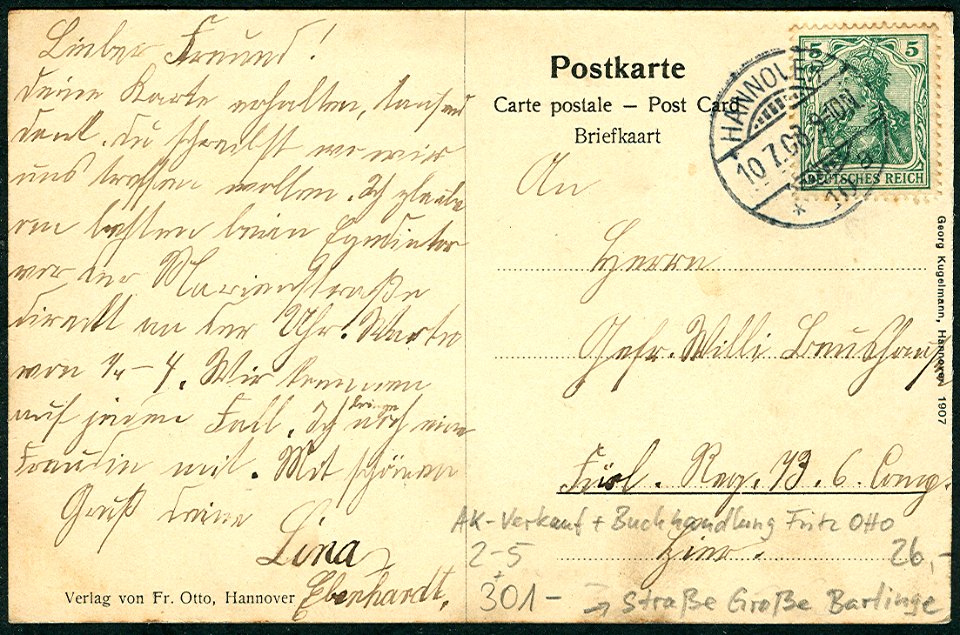 Lieber Freund!
deine Karte erhalten, tausend
dank. du schreibst wo wir
uns treffen wollen. Ich glaube
am besten beim
vor der Marienstraße
direkt an der Uhr. Warte
von ¼ – 4. Wir kommen
auf jeden Fall. Ich bringe noch eine
Freundin mit. Mit schönem
Gruß deine
Lina
Eberhardt.
Verlag von Fr. Otto, Hannover
Postkarte
Carte postale – Post Card
Briefkaart
HANNOVER
10.7.08.
5 5
DEUTSCHES REICH
An
Herrn
Gefr. Willi
Füsl. Reg. 73. 6. Comp.
Hier.
Georg Kugelmann, Hannover 1907
AK-Verkauf + Buchhandlung Fritz Otto
2-5
26,-
301-
→ Straße Große Barlinge